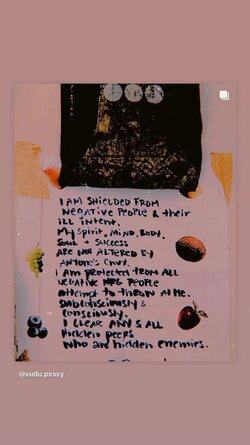 I AM SHIELDED FROM
Negative People & their
ill intent.
My Spirit, MIND, BODY,
SOUL + SUCCESS
ARE NOT ALTERED BY
ANYONE'S ENVY.
I am PROTECTED FROM ALL
NEGATIVE NRG PEOPLE
attempt to throw AT ME.
SUBCONSCIOUSLY &
CONSCIOUSLY.
I CLEAR ANY & ALL
hidden peeps
Who are hidden enemies.
@vudu.pxssy